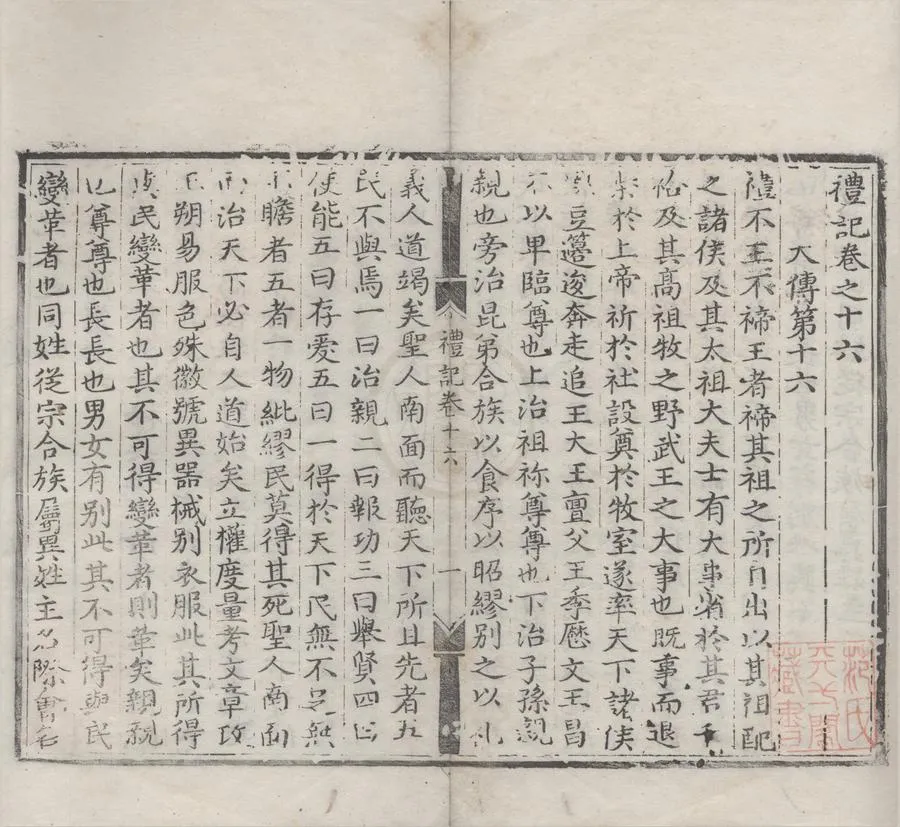 禮記卷之十六
大傳第十六
禮不王不禘王者禘其祖之所自出以其祖配
之諸侯及其太祖大夫士有大事省於其君干
祫及其高祖牧之野武王之大事也既事而退
柴於上帝祈於社設奠於牧室遂率天下諸侯
執豆籩逡奔走追王大王亶父王季歷文王昌
不以卑臨尊也上治祖祢尊尊也下治子孫親
親也旁治昆弟合族以食序以昭繆别之以礼
禮記卷十六
一
義人道竭矣聖人南面而聽天下所且先者五
民不與焉一曰治親二曰報功三曰舉賢四曰
使能五曰存愛五曰一得於天下民無不足無
不贍者五者一物紕繆民莫得其死聖人南面
而治天下必自人道始矣立權度量考文章改
正朔易服色殊徽號異器械别衣服此其所得
與民變革者也其不可得變革者則革矣親親
也尊尊也長長也男女有别此其不可得與民
變革者也同姓從宗合族屬異姓主名際會名
范氏
天一閣
藏書